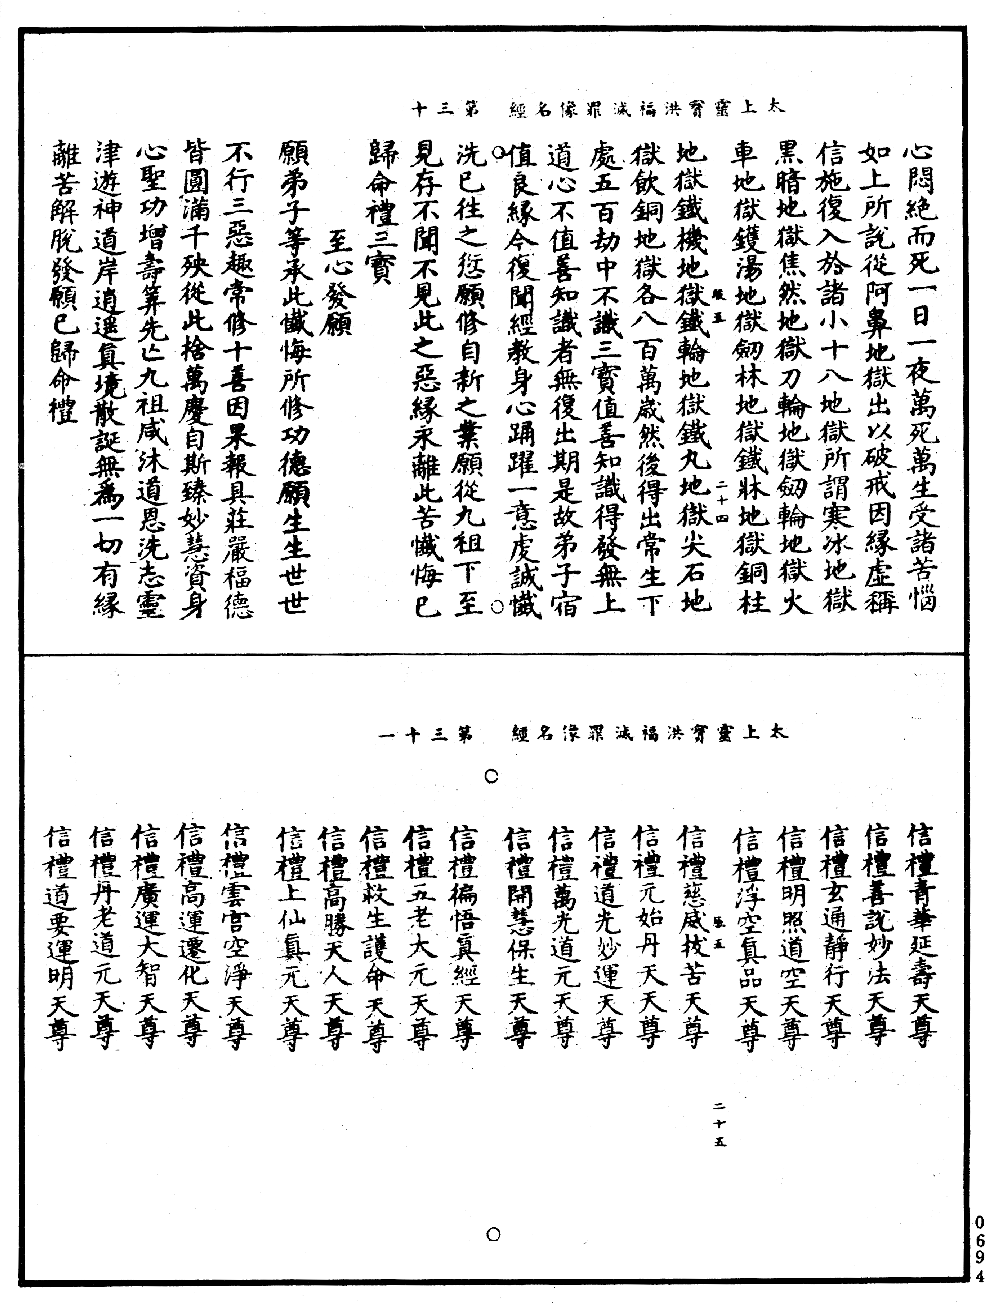 太上靈寳洪福滅罪像名經　第三十
心悶絕而死一日一夜萬死萬生受諸苦惱
如上所說從阿鼻地獄出以破戒因緣虛稱
信施復入於諸小十八地獄所謂寒冰地獄
黑暗地獄焦然地獄刀輪地獄劒輪地獄火
車地獄鑊湯地獄劒林地獄鐵牀地獄銅柱
二十四
地獄鐵機地獄鐵輪地獄鐵丸地獄尖石地
獄飲銅地獄各八百萬歲然後得出常生下
處五百劫中不識三寳值善知識得發無上
道心不值善知識者無復出期是故弟子宿
值良緣今復聞經教身心踊躍一意虔誠懺
洗已往之愆願修自新之業願從九祖下至
見存不聞不見此之惡緣永離此苦懺悔已
歸命禮三寳
至心發願
願弟子等承此懺悔所修功德願生生世世
不行三惡趣常修十善因果報具莊嚴福德
皆圓滿千殃從此捨萬慶自斯臻妙慧資身
心聖功增壽筭先亡九祖咸沐道恩洗志靈
津遊神道岸逍遥真境散誕無為一切有緣
離苦解脫發願已歸命禮
太上靈寳洪福滅罪像名經　第三十一
信禮青華延壽天尊
信禮善說妙法天尊
信禮玄通靜行天尊
信禮明照道空天尊
信禮浮空真品天尊
二十五
信禮慈威拔苦天尊
信禮元始丹天天尊
信禮道光妙運天尊
信禮萬光道元天尊
信禮開慧保生天尊
信禮徧悟真經天尊
信禮五老大元天尊
信禮救生護命天尊
信禮高勝天人天尊
信禮上仙真元天尊
信禮雲宮空淨天尊
信禮高運遷化天尊
信禮廣運大智天尊
信禮丹老道元天尊
信禮道要運明天尊
0694